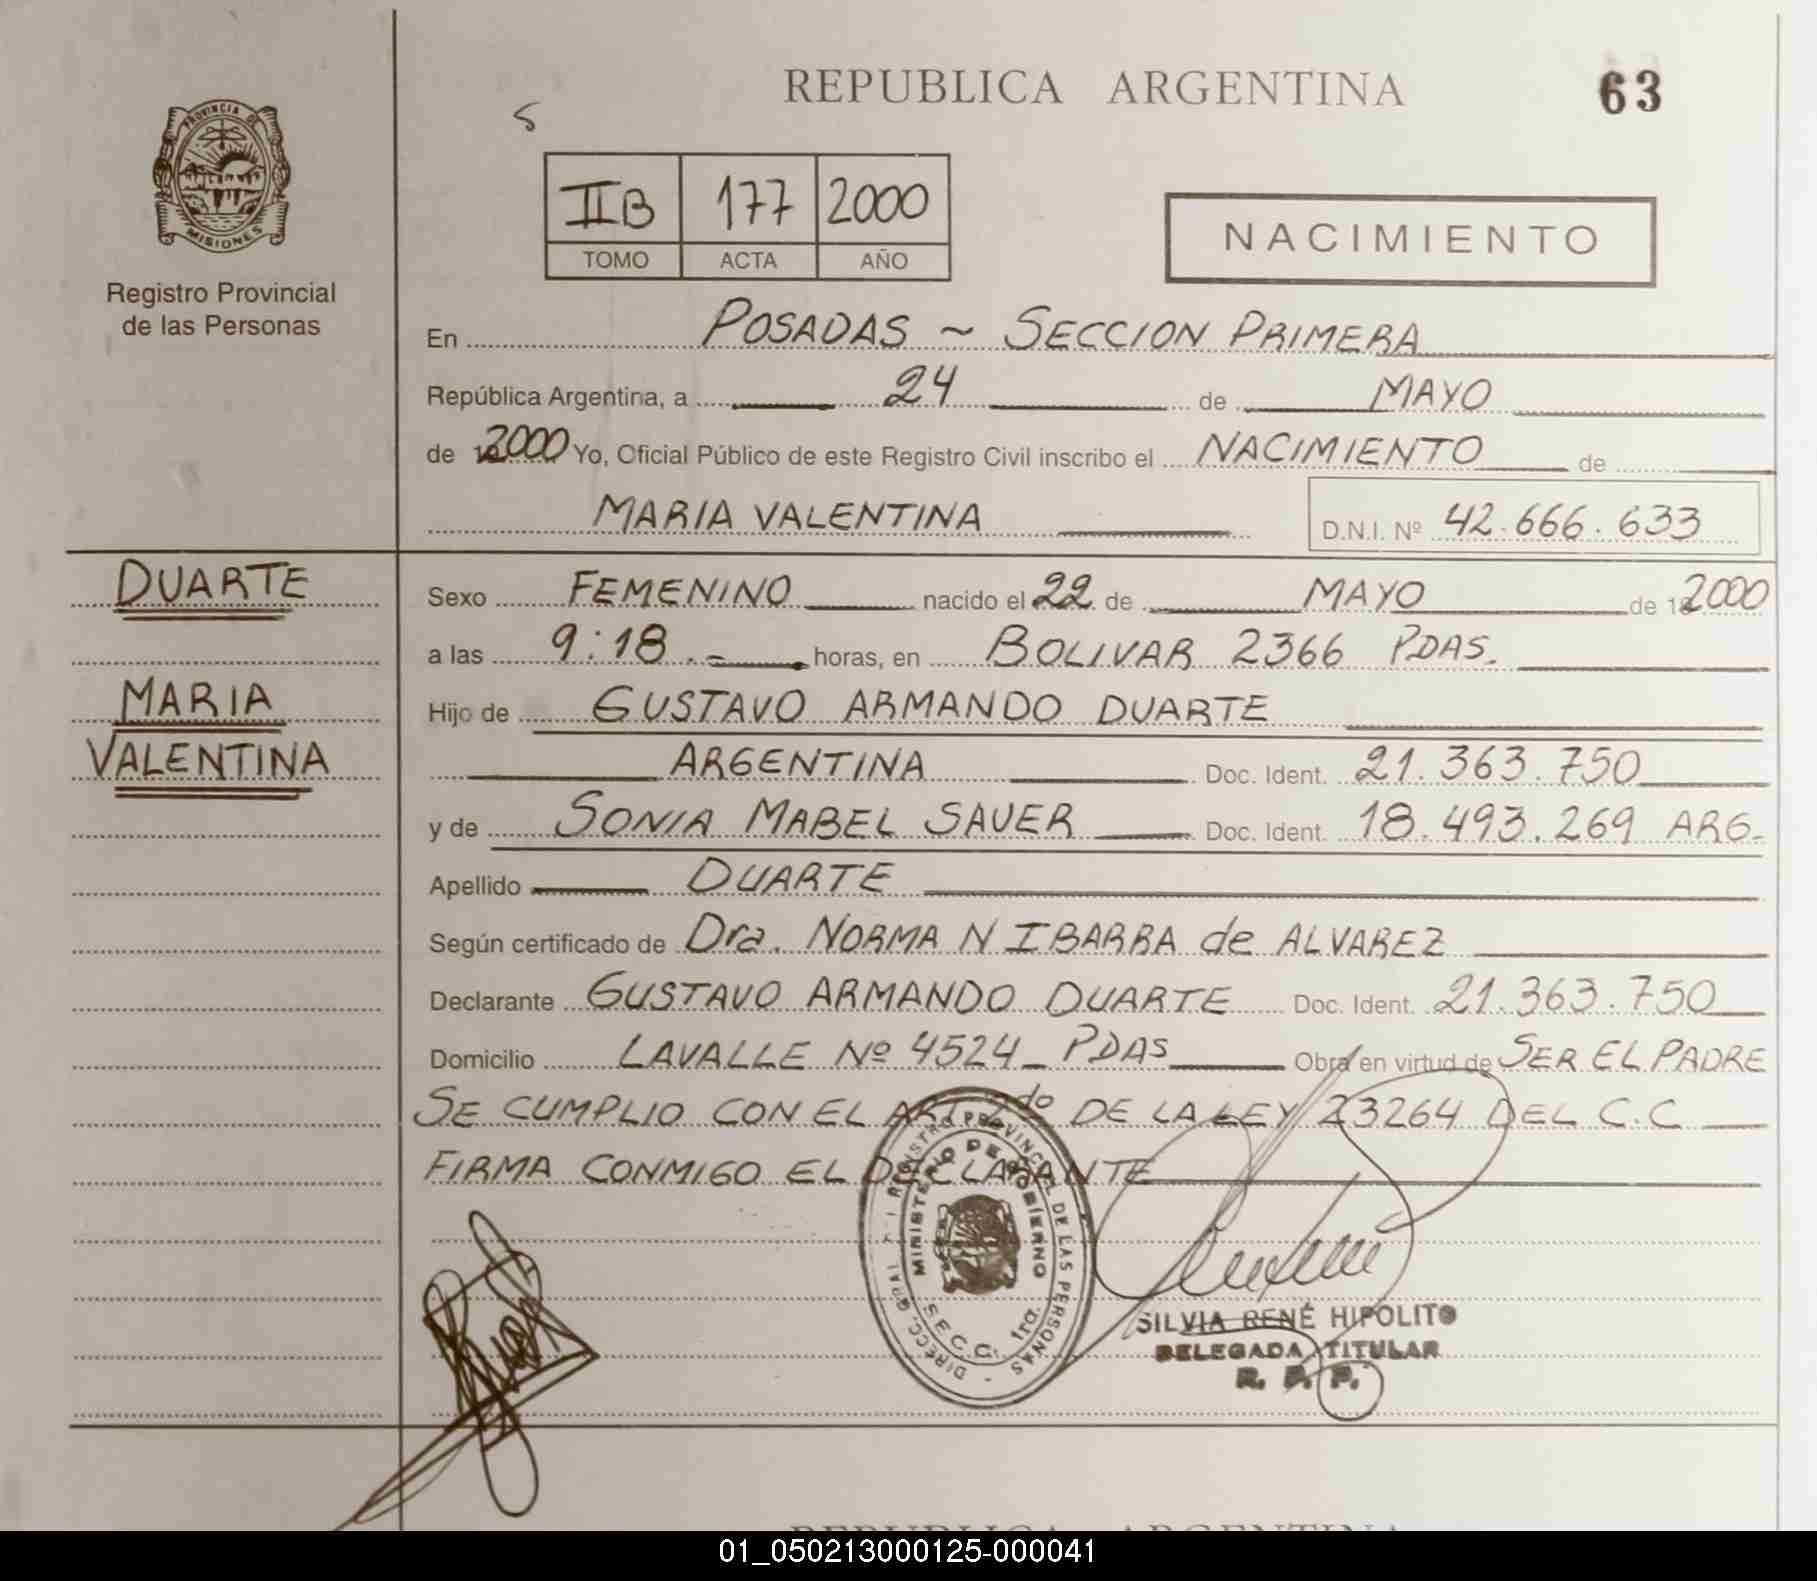 REPUBLICA ARGENTINA
63
5
PROVINCIA DE
MISIONES
Registro Provincial
de las Personas
IIB 177 2000
TOMO ACTA AÑO
NACIMIENTO
En POSADAS ~ SECCION PRIMERA
República Argentina, a 24 de MAYO
de 2000 Yo, Oficial Público de este Registro Civil inscribo el NACIMIENTO de
MARIA VALENTINA D.N.I. Nº 42.666.633
DUARTE
MARIA
VALENTINA
Sexo FEMENINO nacido el 22 de MAYO de 2000
a las 9:18.- horas, en BOLIVAR 2366 PDAS.
Hijo de GUSTAVO ARMANDO DUARTE
ARGENTINA Doc. Ident. 21.363.750
y de SONIA MABEL SAUER Doc. Ident. 18.493.269 ARG-
Apellido DUARTE
Según certificado de Dra. NORMA N IBARRA de ALVAREZ
Declarante GUSTAVO ARMANDO DUARTE Doc. Ident. 21.363.750
Domicilio LAVALLE Nº 4524_ PDAS Obra en virtud de SER EL PADRE
SE CUMPLIO CON EL ART 2do DE LA LEY 23264 DEL C.C
FIRMA CONMIGO EL DECLARANTE
REGISTRO PROVINCIAL DE LAS PERSONAS
MINISTERIO DE GOBIERNO
SECC. 1ra.
DIRECC. GRAL
SILVIA RENÉ HIPOLITO
DELEGADA TITULAR
R. P. P.
REPUBLICA ARGENTINA
01_050213000125-000041